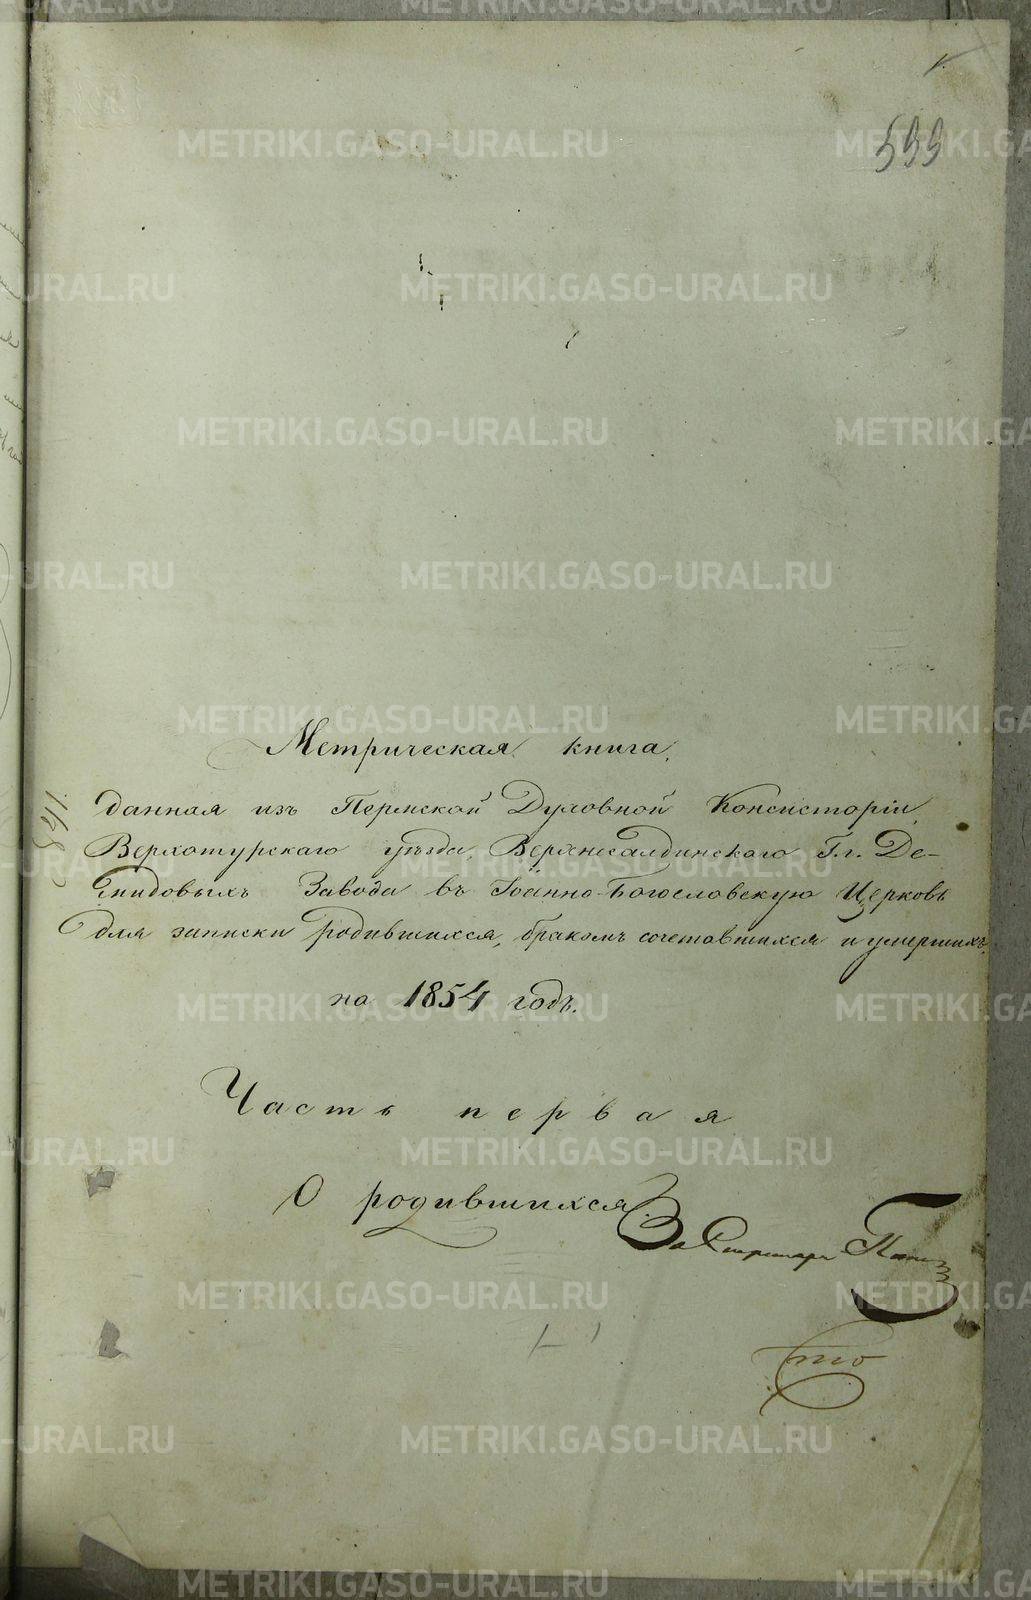 599
Метрическая книга,
данная изъ Пермской Духовной Консисторіи,
Верхотурскаго уѣзда, Верхнесалдинскаго Гг. Де-
мидовыхъ Завода въ Іоанно-Богословскую Церковь
для записки родившихся, бракомъ сочетавшихся и умершихъ,
на 1854 годъ.
Часть первая
О родившихся
За Секретаря
METRIKI.GASO-URAL.RU